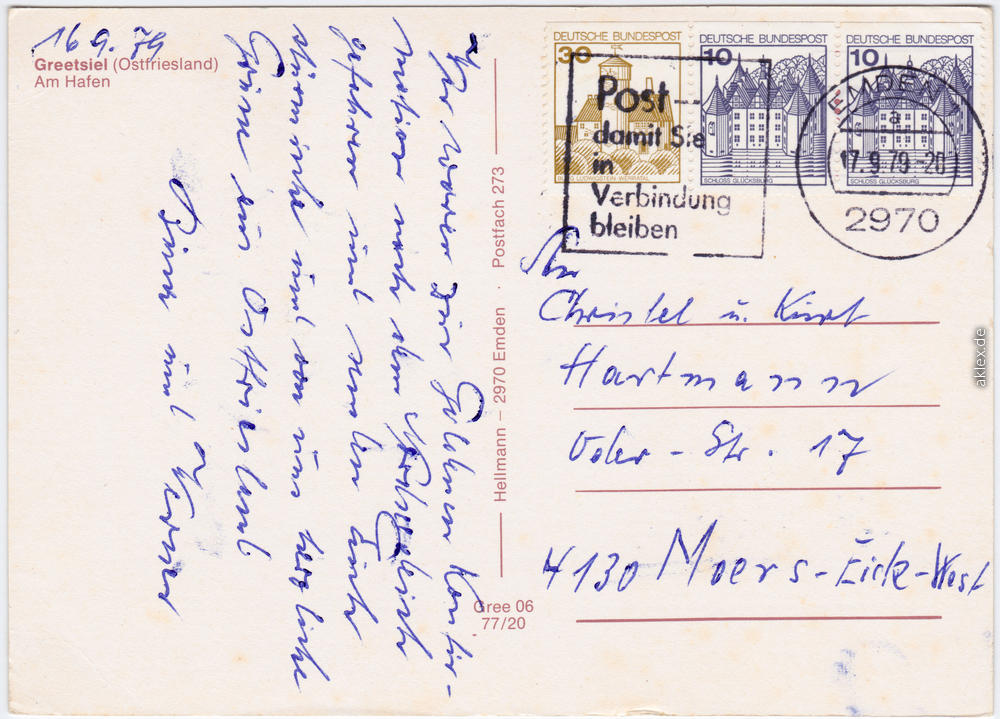 16.9.79
Greetsiel (Ostfriesland)
Am Hafen
Wir waren zur
nach dem
gefahren und
stürmische und von uns herzliche
Grüße aus Ostfriesland
und Werner
Hellmann – 2970 Emden · Postfach 273
Gree 06
77/20
DEUTSCHE BUNDESPOST
30
BURG LUDWIGSTEIN WERRATAL
DEUTSCHE BUNDESPOST
10
SCHLOSS GLÜCKSBURG
DEUTSCHE BUNDESPOST
10
SCHLOSS GLÜCKSBURG
Post
damit Sie
in
Verbindung
bleiben
EMDEN 1
a
17.9.79-20
2970
Christel u. Kurt
Hartmann
Oder-Str. 17
4130 Moers-Eick-West
aklex.de